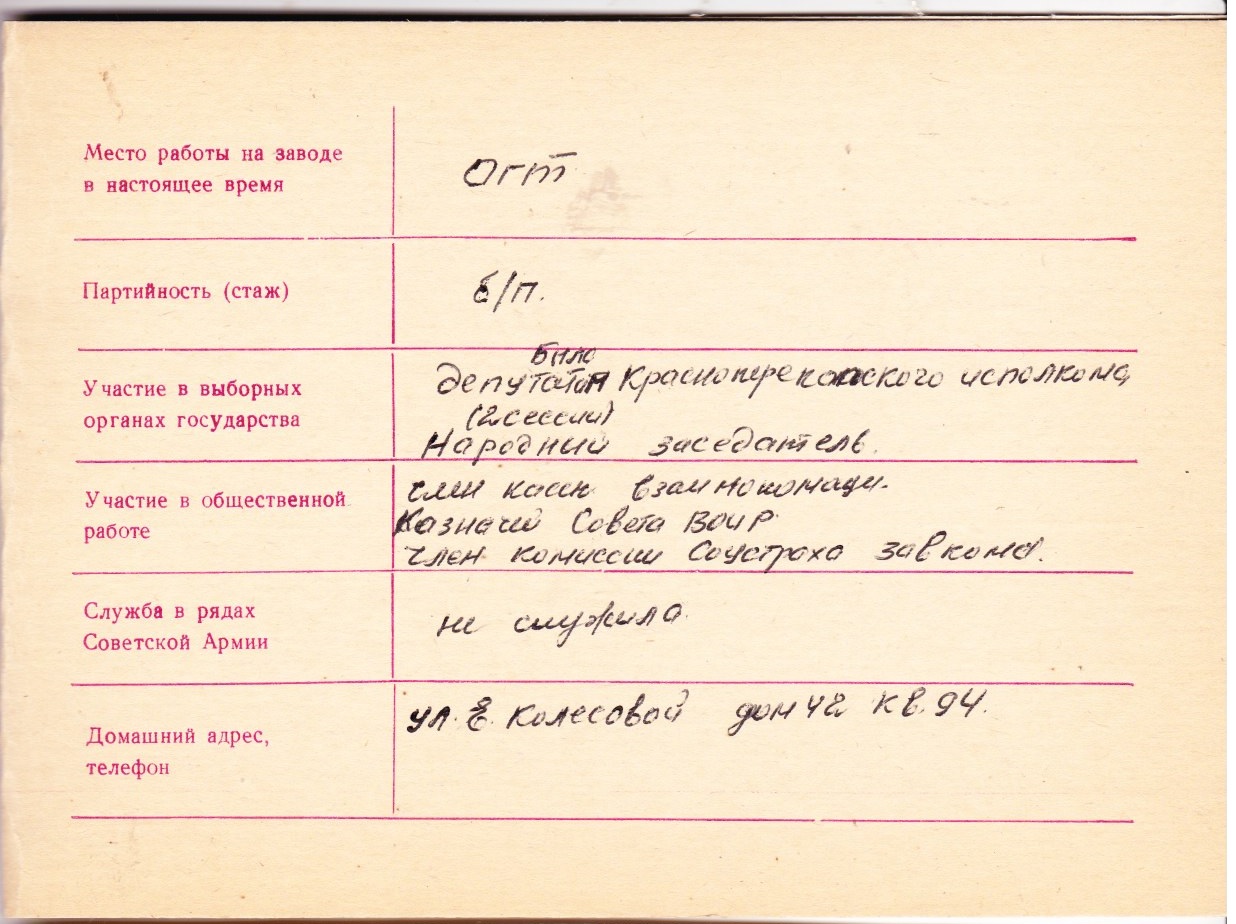 Место работы на заводе
в настоящее время
ОГТ
Партийность (стаж)
б/п.
Участие в выборных
органах государства
Была
депутатом Красноперекопского исполкома
(2 сессии)
Народный заседатель.
Участие в общественной
работе
член кассы взаимопомощи.
Казначей Совета ВОИР
член комиссии Соцстраха завкома.
Служба в рядах
Советской Армии
не служила
Домашний адрес,
телефон
ул. Е. Колесовой дом 42 кв. 94.